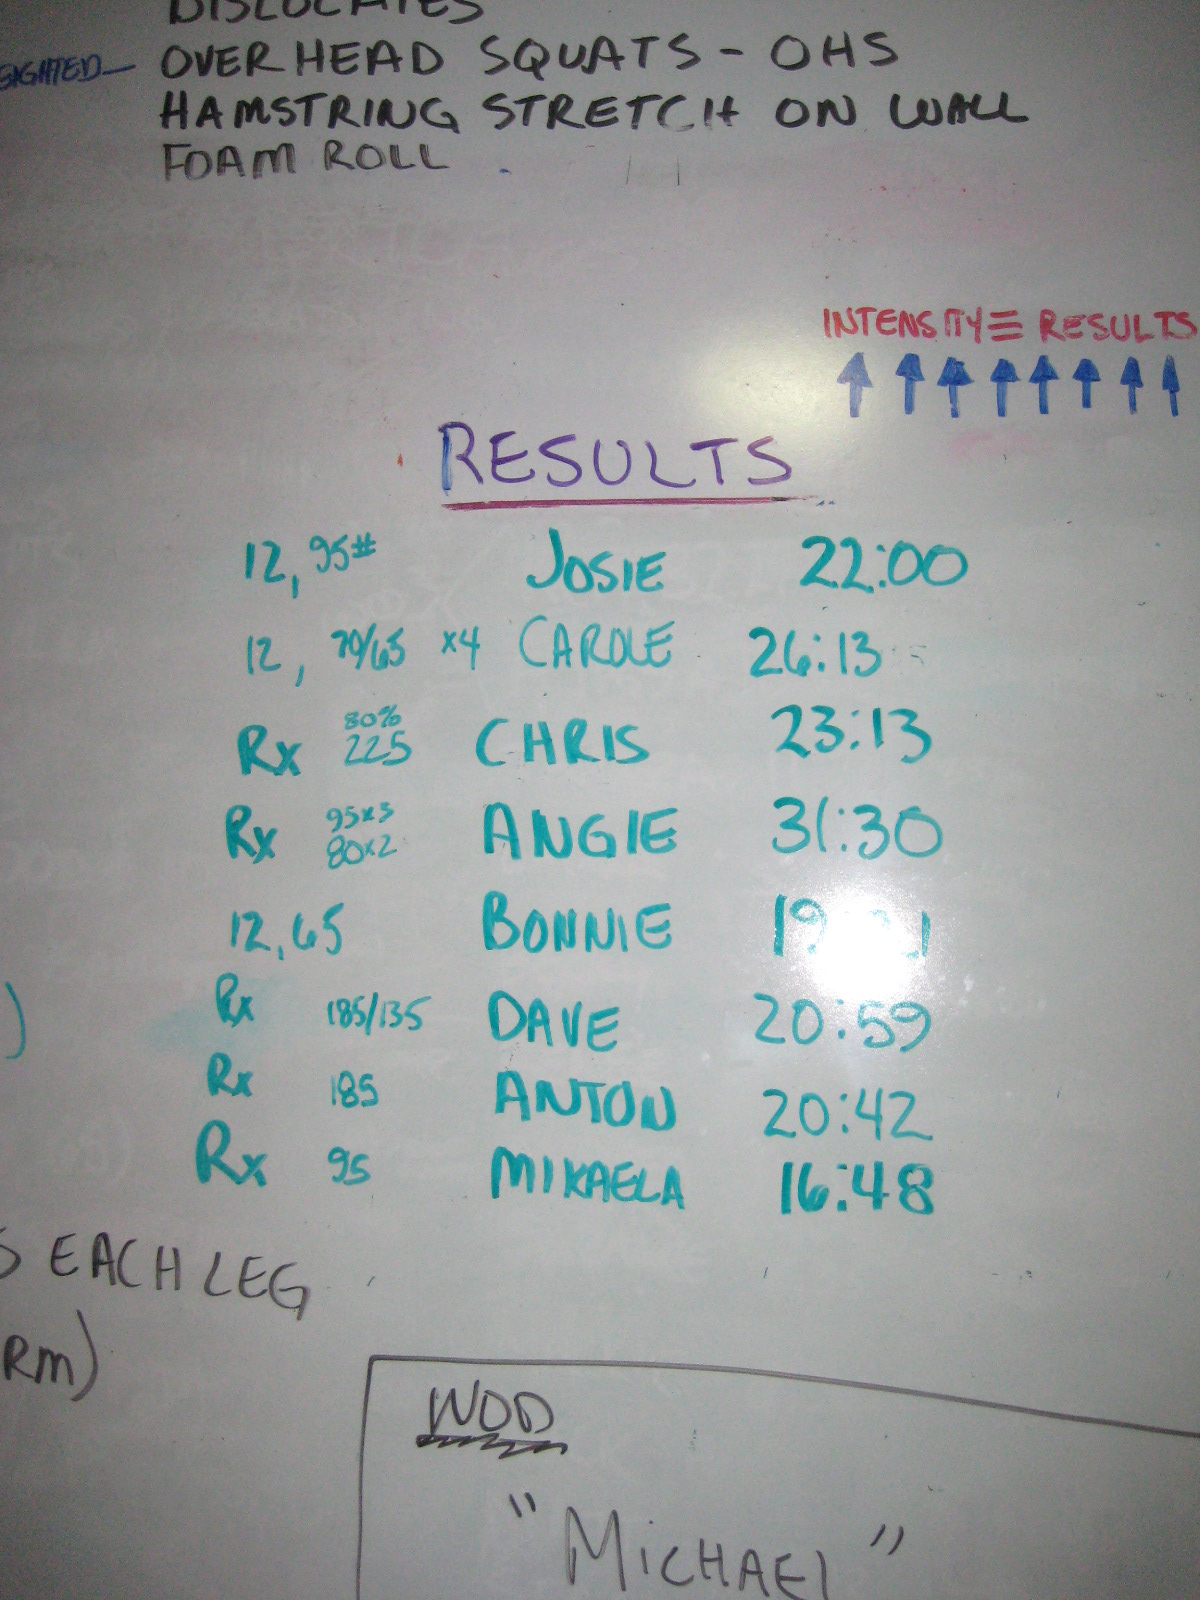 DISLOCATES
OVERHEAD SQUATS - OHS
HAMSTRING STRETCH ON WALL
FOAM ROLL
INTENSITY ≡ RESULTS
RESULTS
12, 95# JOSIE 22:00
12, 70/65 x4 CAROLE 26:13
Rx 80% 225 CHRIS 23:13
Rx 95x3 80x2 ANGIE 31:30
12, 65 BONNIE
Rx 185/135 DAVE 20:59
Rx 185 ANTON 20:42
Rx 95 MIKAELA 16:48
EACH LEG
RM)
WOD
"MICHAEL"